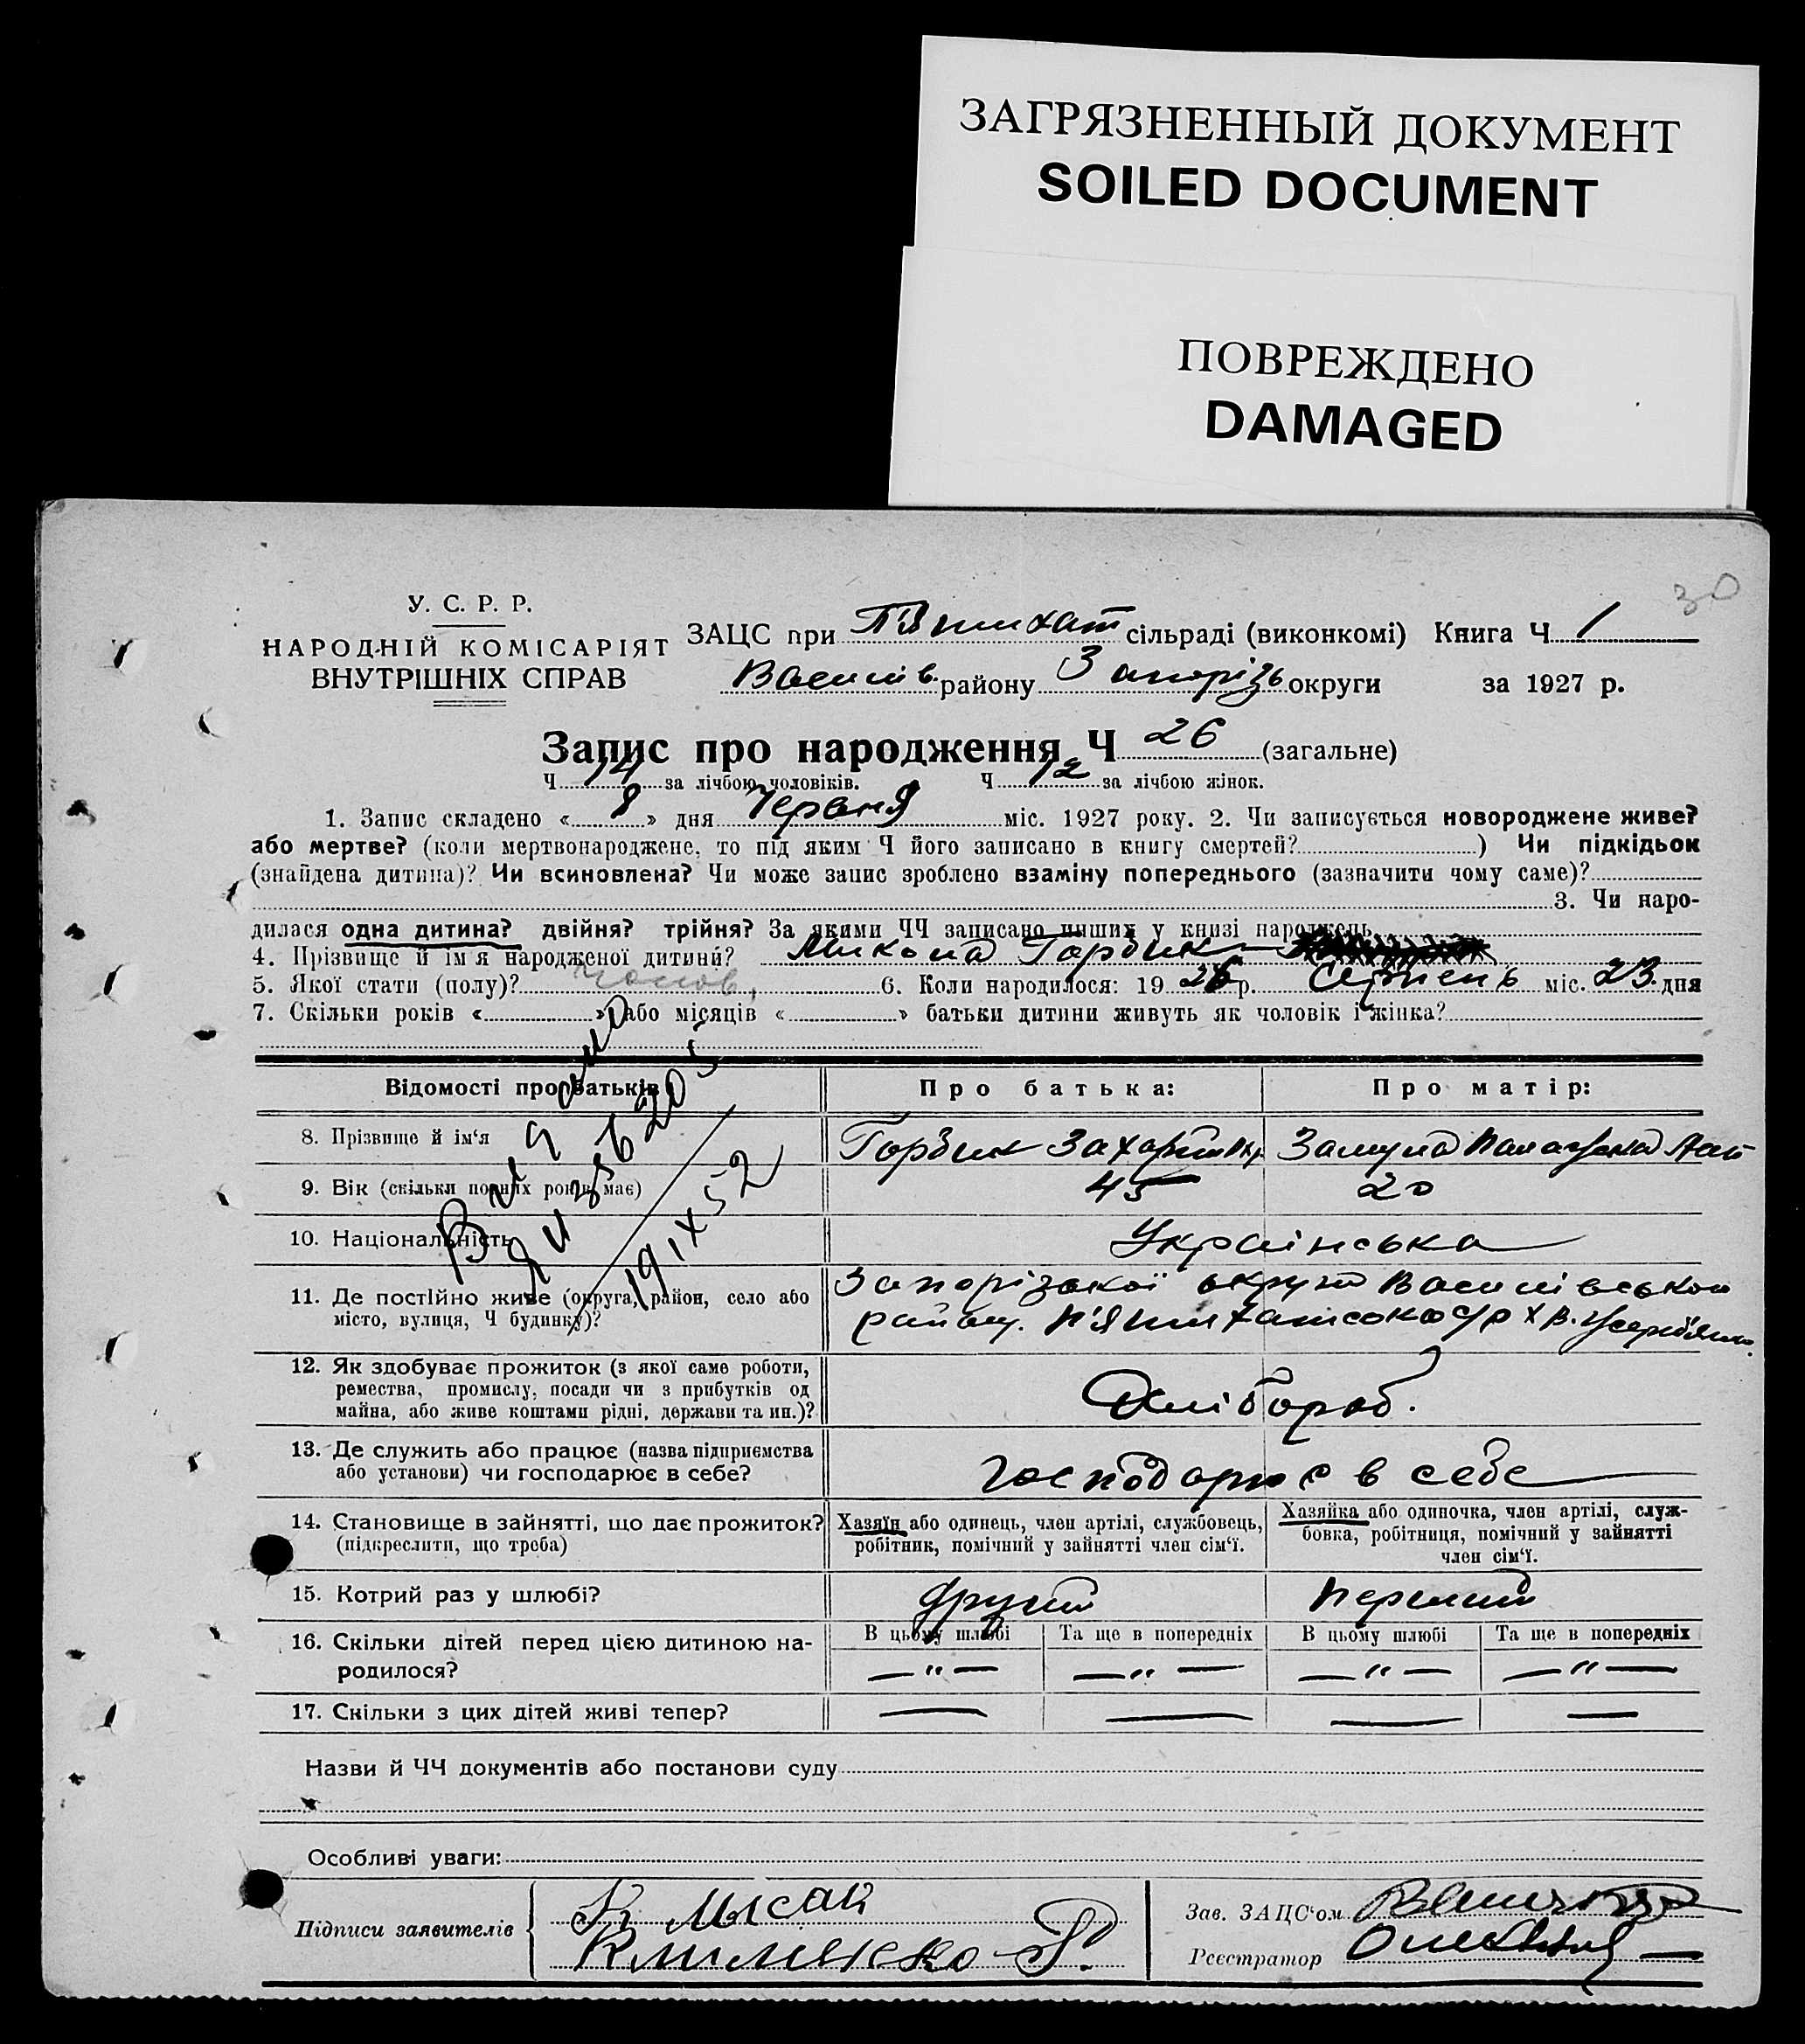 ЗАГРЯЗНЕННЫЙ ДОКУМЕНТ
SOILED DOCUMENT
ПОВРЕЖДЕНО
DAMAGED
30
У. С. Р. Р.
НАРОДНІЙ КОМІСАРІЯТ
ВНУТРІШНІХ СПРАВ
ЗАЦС при П'Ятихат сільраді (виконкомі) Книга Ч 1
Василів. району Запорізь округи за 1927 р.
Запис про народження Ч 26 (загальне)
Ч 14 за лічбою чоловіків. Ч 12 за лічбою жінок.
1. Запис складено « 8 » дня Червня міс. 1927 року. 2. Чи записується новороджене живе?
або мертве? (коли мертвонароджене, то під яким Ч його записано в книгу смертей? ) Чи підкідьок
(знайдена дитина)? Чи всиновлена? Чи може запис зроблено взаміну попереднього (зазначити чому саме)?
3. Чи наро-
дилася одна дитина? двійня? трійня? За якими ЧЧ записано инших у книзі народжень
4. Прізвище й ім'я народженої дитини? Микола Горбик
5. Якої стати (полу)? чолов. 6. Коли народилося: 19 26 р. Серпень міс. 23 дня
7. Скільки років « » або місяців « » батьки дитини живуть як чоловік і жінка?
Відомості про батьків Про батька: Про матір:
8. Прізвище й ім'я Горбик Захарій Замула Палажка
9. Вік (скільки повних років має) 45 20
10. Національність Українська
11. Де постійно живе (округа, район, село або Запорізької округи Василівського
місто, вулиця, Ч будинку)? району. П'Ятихатсько с/р х
12. Як здобуває прожиток (з якої саме роботи,
ремества, промислу, посади чи з прибутків од
майна, або живе коштами рідні, держави та ин.)? Хлібороб.
13. Де служить або працює (назва підприємства
або установи) чи господарює в себе? господарює в себе
14. Становище в зайнятті, що дає прожиток? Хазяїн або одинець, член артілі, службовець, Хазяйка або одиночка, член артілі, служ-
(підкреслити, що треба) робітник, помічний у зайнятті член сім'ї. бовка, робітниця, помічний у зайнятті
член сім'ї.
15. Котрий раз у шлюбі? другий первий
16. Скільки дітей перед цією дитиною на- В цьому шлюбі Та ще в попередніх В цьому шлюбі Та ще в попередніх
родилося? — „ — — „ — — „ — — „ —
17. Скільки з цих дітей живі тепер? — — — —
19 IX 52
Назви й ЧЧ документів або постанови суду
Особливі уваги:
Підписи заявителів
К Лысак
Клименко
Зав. ЗАЦС'ом
Реєстратор